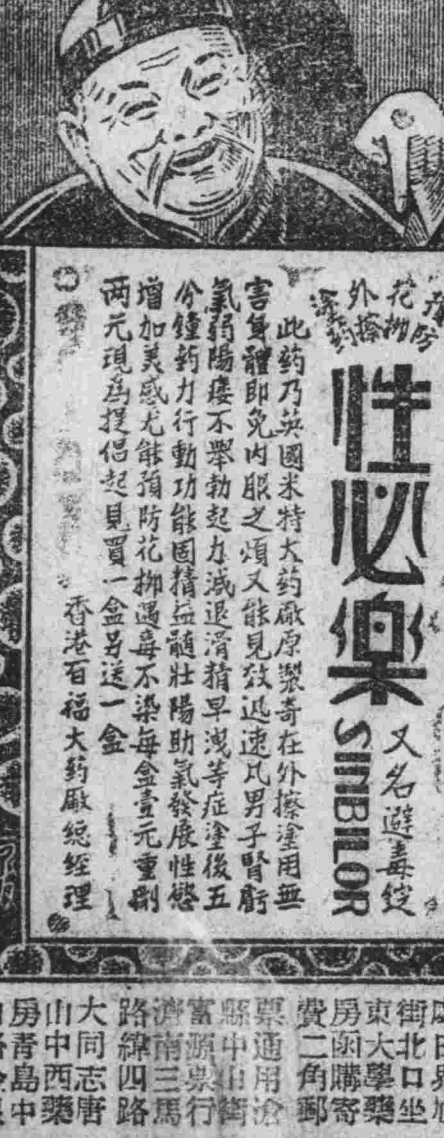 預防
花柳
外擦
塗药
性必樂
又名避毒錠
SINBILOR
此药乃英國米特大药廠原製奇在外擦塗用無
害身體即免内服之煩又能見效迅速凡男子腎虧
氣弱陽痿不舉勃起力減退滑精早洩等症塗後五
分鐘药力行動功能固精益髓壯陽助氣發展性慾
增加美感尤能預防花柳遇毒不染每盒壹元重劑
两元現為提倡起見買一盒另送一盒
香港百福大药廠總經理
街北口坐
東大學藥
房函購寄
費二角郵
票通用滄
縣中山街
富源票行
濟南三馬
路緯四路
大同志唐
山中西藥
房青島中